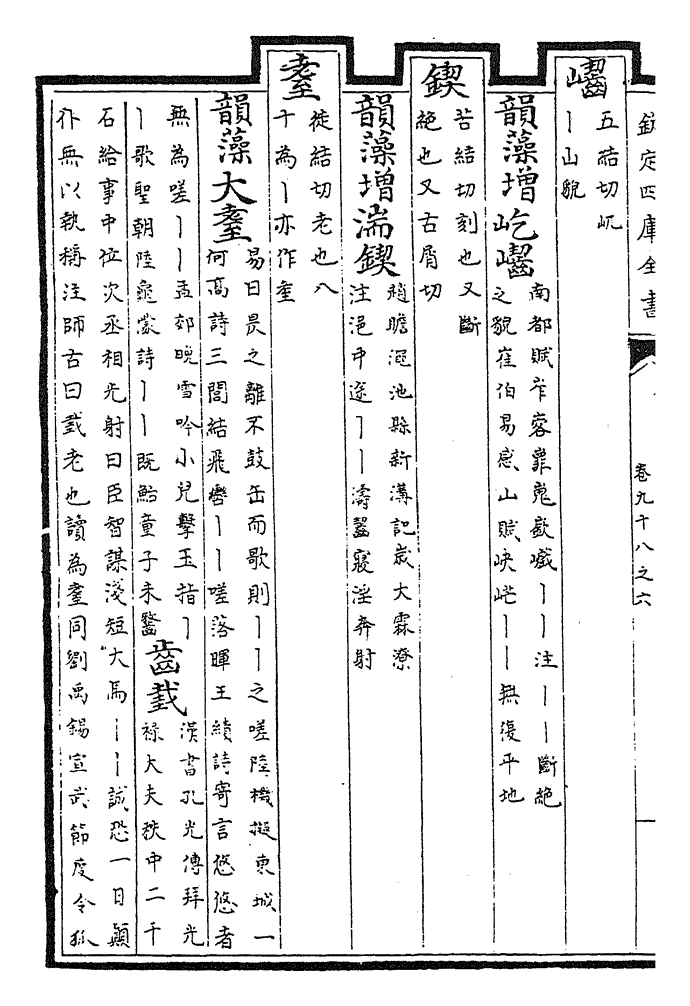 欽定四庫全書
卷九十八之六
嶭
五結切屼
丨山貌
韻藻增屹嶭
南都賦岝㟯嶵嵬嶔巇丨丨注丨丨斷絶
之貌崔伯易感山賦岟峞丨丨無復平地
鍥
苦結切刻也又斷
絶也又古屑切
韻藻增湍鍥
趙瞻澠池縣新溝記歲大霖潦
注浥中逵丨丨濤齧寖淫奔射
耋
徒結切老也八
十為丨亦作耊
韻藻大耋
易日昃之離不鼓缶而歌則丨丨之嗟陸機擬東城一
何高詩三閭結飛轡丨丨嗟落暉王績詩寄言悠悠者
無為嗟丨丨孟郊晚雪吟小兒擊玉指丨
丨歌聖朝陸龜蒙詩丨丨既鮐童子未鬒
齒臷
漢書孔光傳拜光
祿大夫秩中二千
石給事中位次丞相光謝曰臣智謀淺短犬馬丨丨誠恐一日顛
仆無以執稱注師古曰臷老也讀為耋同劉禹錫宣武節度令狐